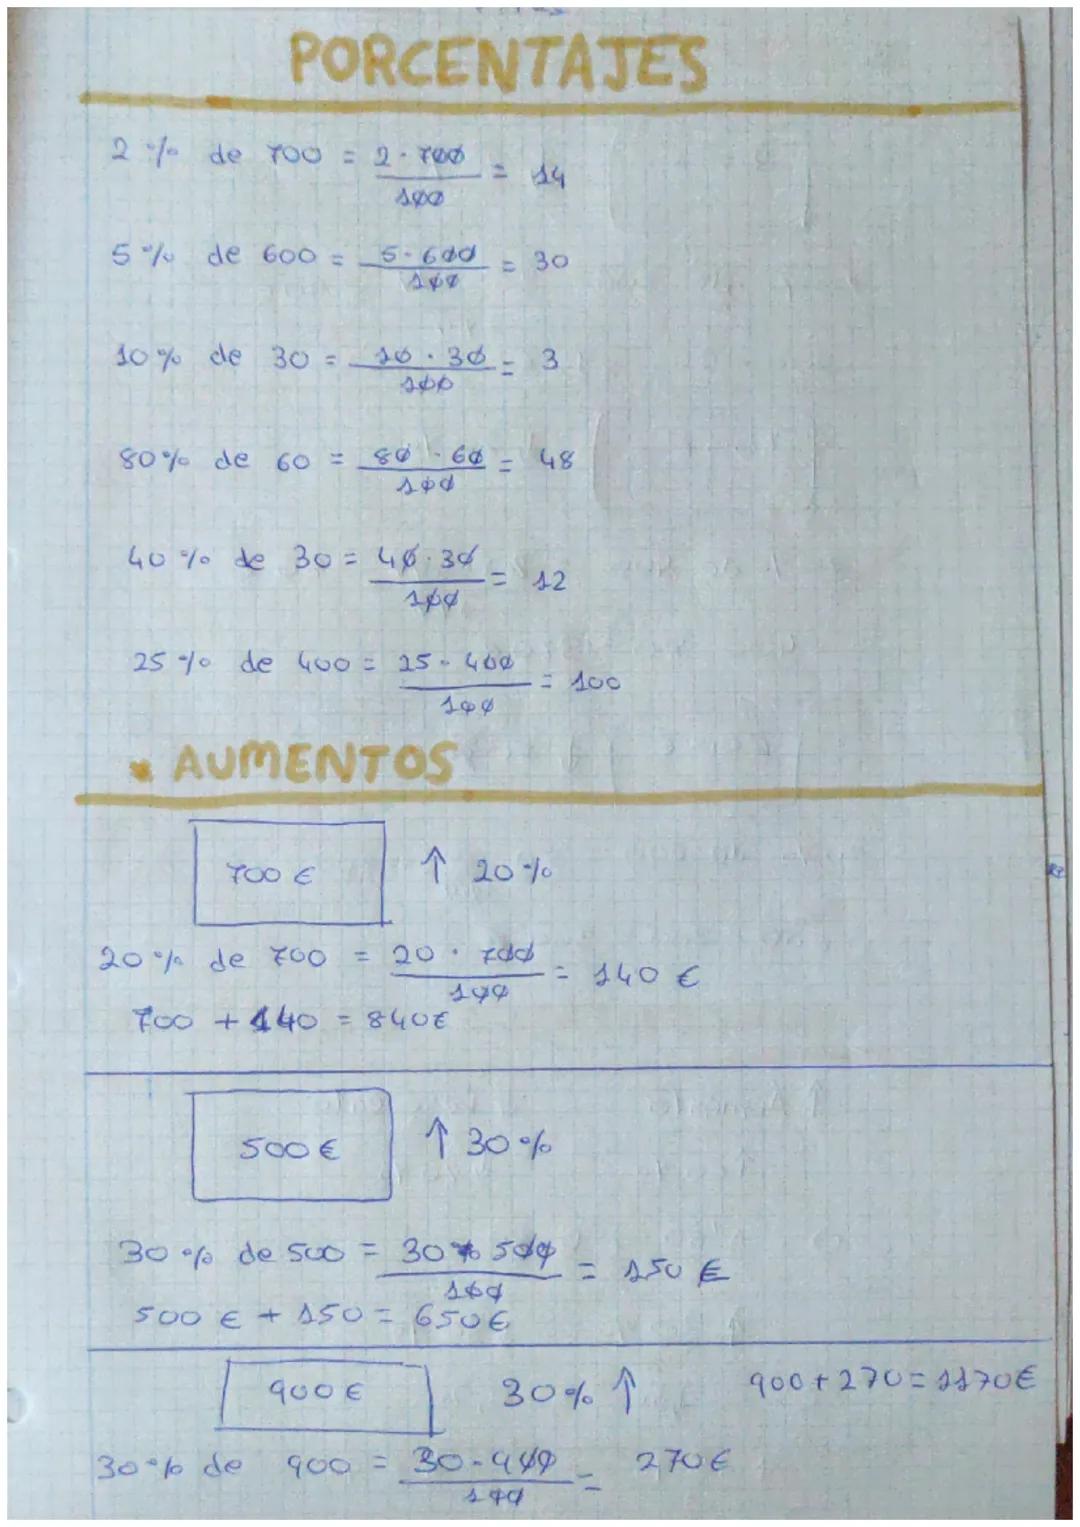 PORCENTAJES
2% de 700 = 2·700/100 = 14
5% de 600 = 5·600/100 = 30
10% de 30 = 10·30/100 = 3
80% de 60 = 80·60/100 = 48
40% de 30 = 40·30/100 = 12
25% de 400 = 25·400/100 = 100
* AUMENTOS
700 € ↑ 20%
20% de 700 = 20·700/100 = 140 €
700 + 140 = 840€
500 € ↑ 30%
30% de 500 = 30 500/100 = 150 €
500 € + 150 = 650€
900 € 30% ↑ 900+270=1170€
30% de 900 = 30·900/100 = 270€